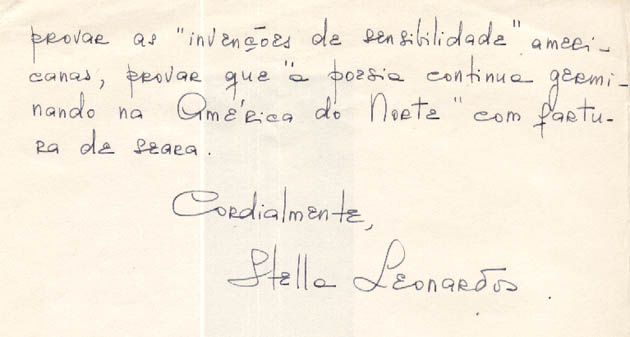 provar as "invenções de sensibilidade" ameri-
canas, provar que "a poesia continua germi-
nando na América do Norte" com fartu-
ra de seara.
Cordialmente,
Stella Leonardos.